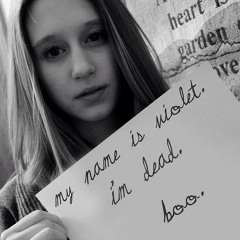 heart is
garden
ove
my name is violet.
i'm dead.
boo.